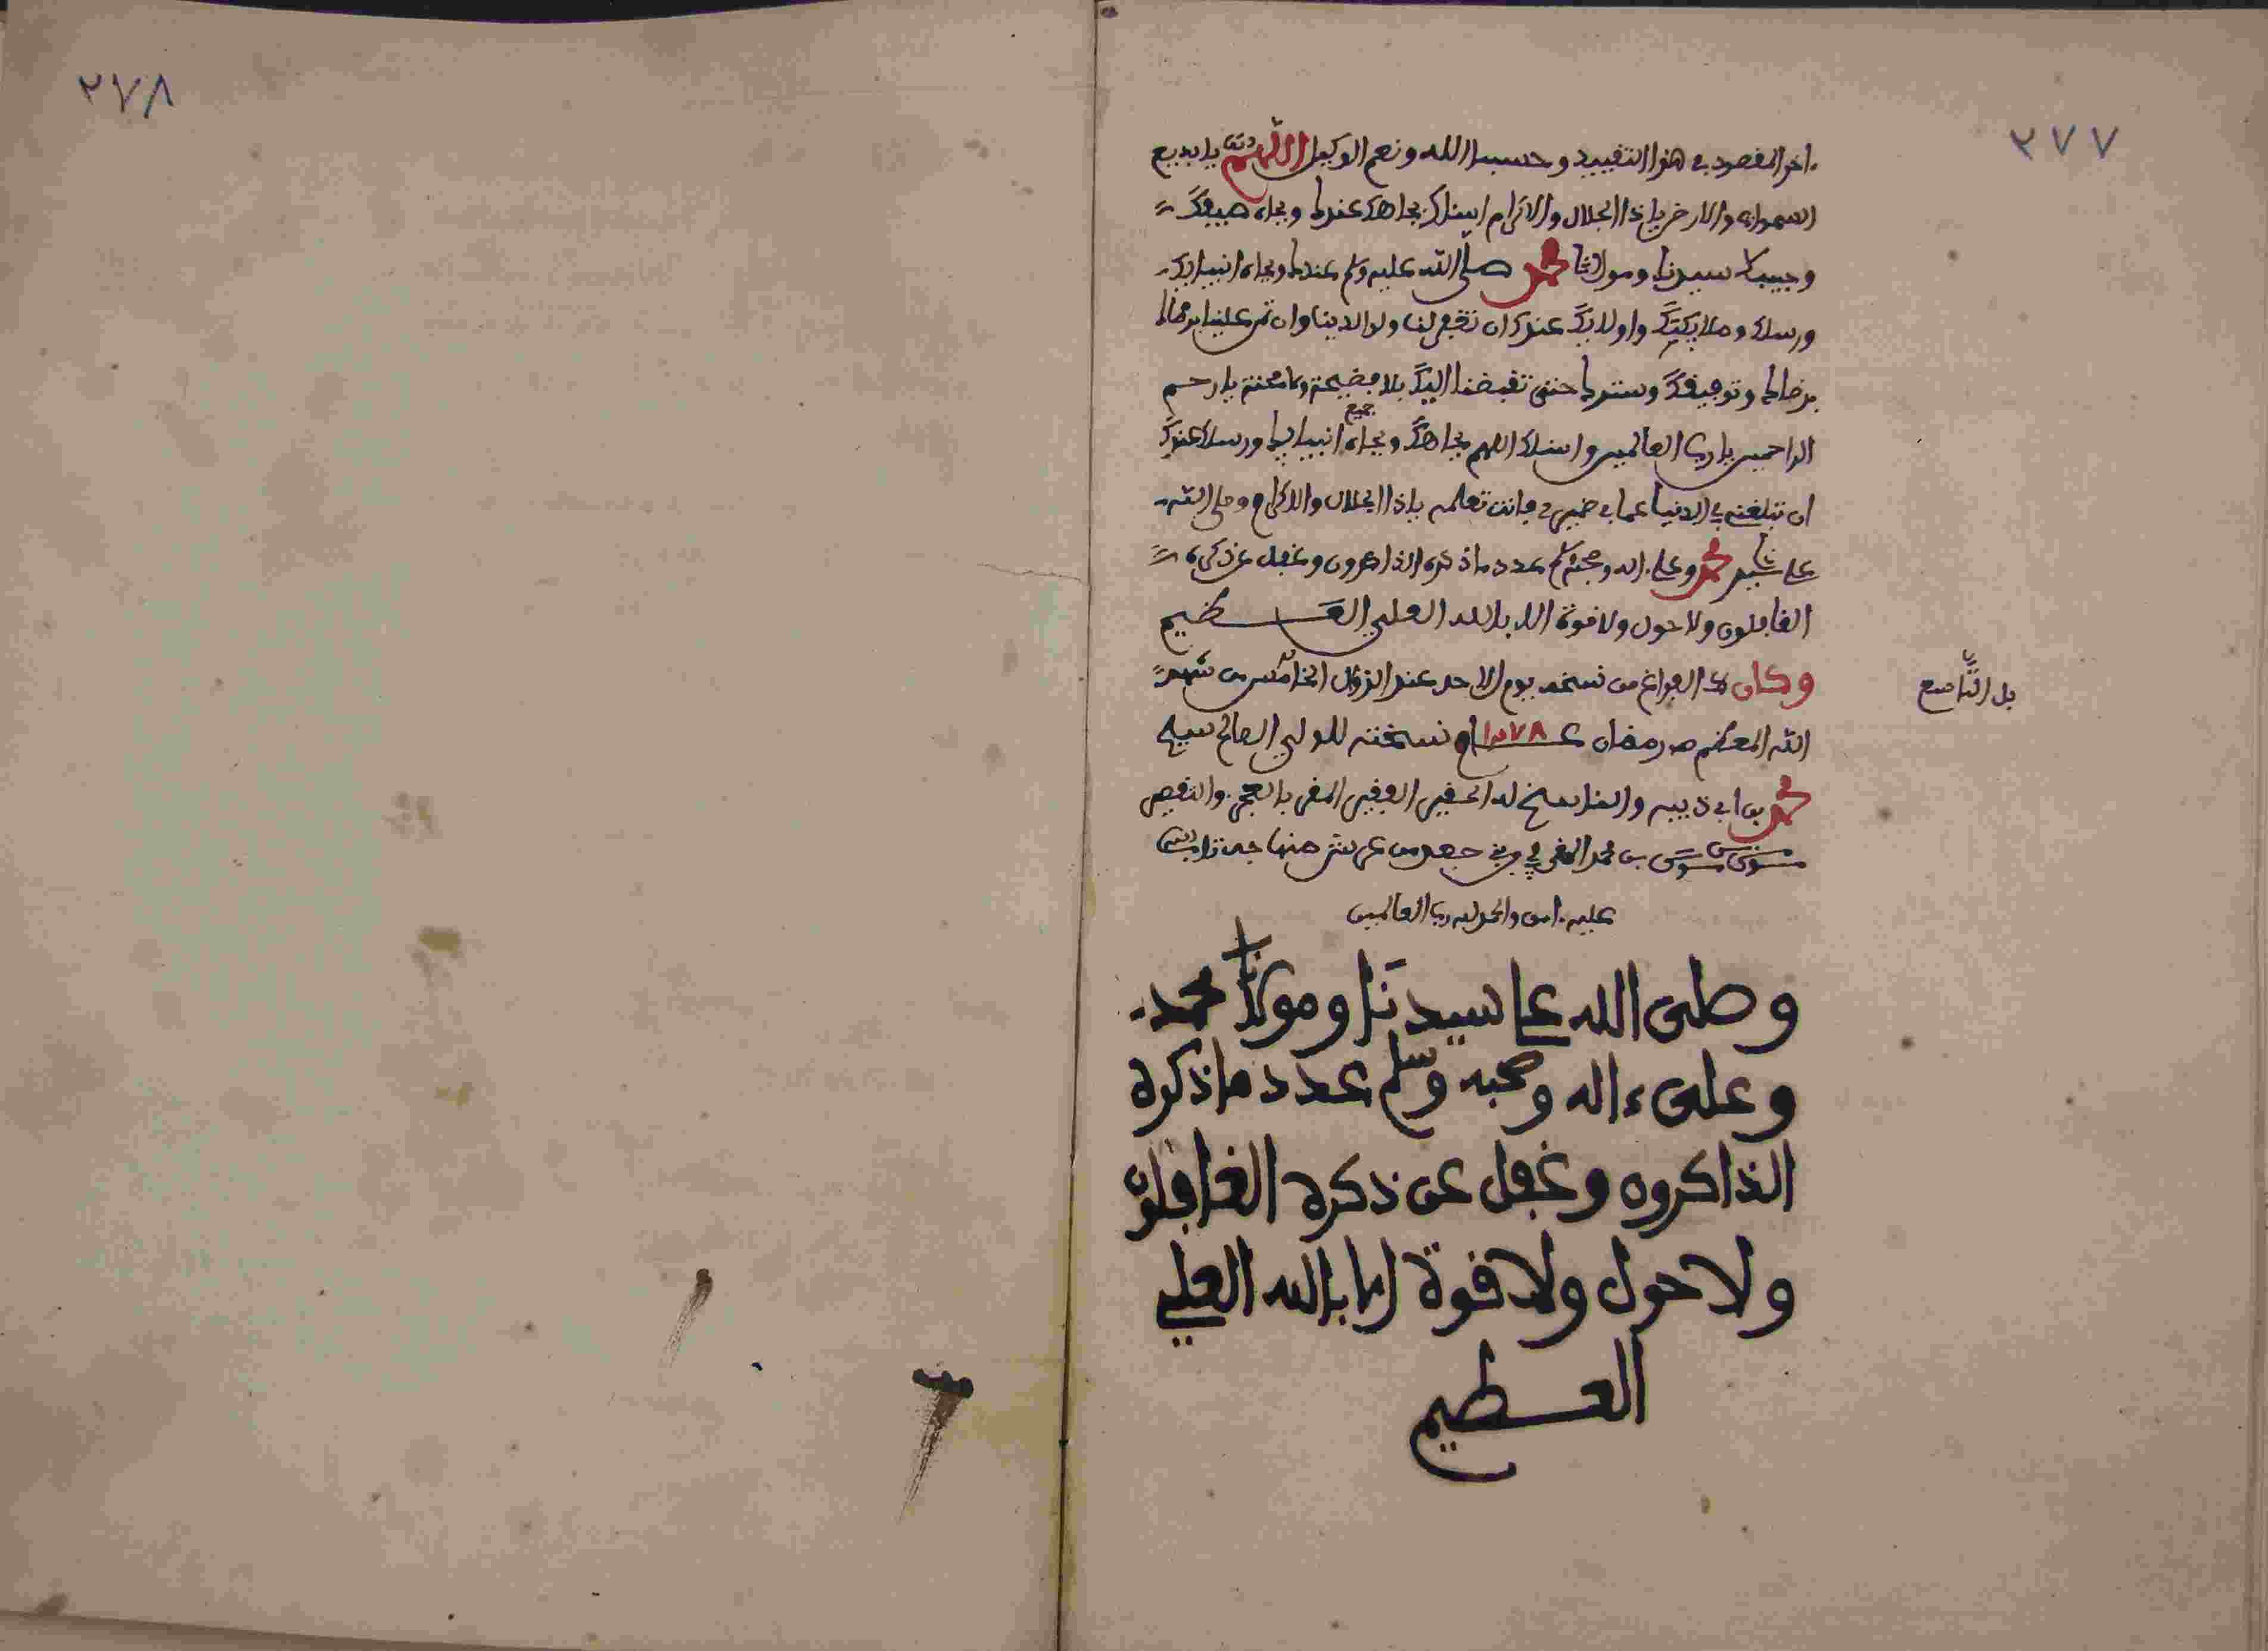 ٢٧٧
اخر المقصود في هذا التقييد وحسبنا الله ونعم الوكيل اللهم يا بديع
السموات والارض يا ذا الجلال والاكرام اسئلك بجاهك عندك وبجاه
وحبيبك سيدنا ومولانا محمد صلى الله عليه وسلم عندك وبجاه انبيايك
ورسلك وملايكتك واوليايك عندك ان تغفر لنا ولوالدينا وان تمن علينا
برضاك وتوفيقك وسترك حتى تقبضنا اليك بلا فضيحة ولا محنة يا ارحم
الراحمين يا رب العالمين واسئلك اللهم بجاهك وبجاه جميع انبيايك ورسلك عندك
ان تبلغني في الدنيا عما في ضميري وانت تعلمه يا ذا الجلال والاكرام وصلى الله
على سيدنا محمد وعلى ءاله وصحبه وسلم عدد ما ذكره الذاكرون وغفل عن ذكره
الغافلون ولا حول ولا قوة الا بالله العلي العظيم
وكان الفراغ من نسخه يوم الاحد عند الزوال الخامس من شهر
بل التاسع
الله المعظم رمضان عــام نسخته للولي الصالح سيدي
محمد بن ابي والناسخ له الحقير الفقير المقر بالعجز والتقصير
بن محمد
عليه ءامين والحمد لله رب العالمين
وصلى الله على سيدنا ومولانا محمد
وعلى ءاله وصحبه وسلم عدد ما ذكره
الذاكرون وغفل عن ذكره الغافلون
ولا حول ولا قوة الا بالله العلي
العظيم
٢٧٨